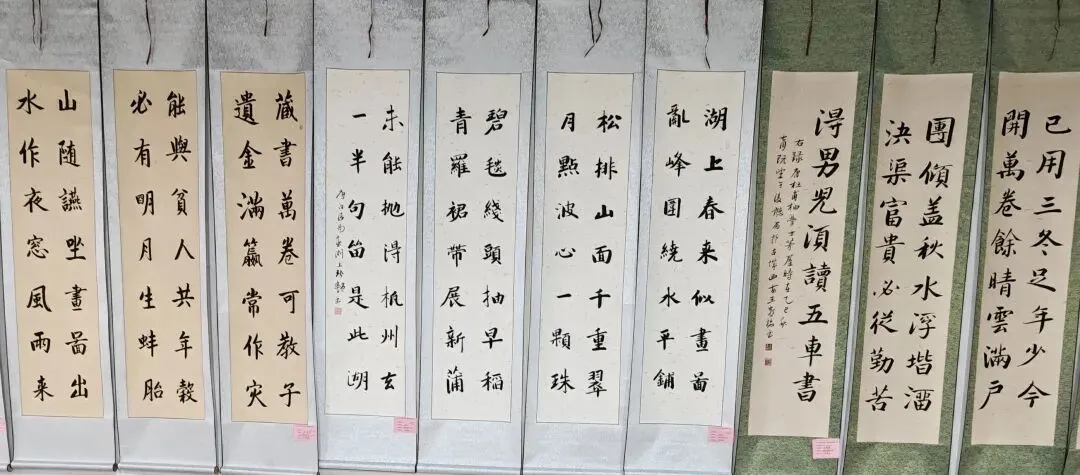 已用三冬足年少今
開萬卷餘晴雲滿戶
團傾盖秋水浮堦溜
決渠富貴必從勤苦
淂男児湏讀五車書
右録唐杜甫柏學士茅屋詩
湖上春来似畫啚
亂峰圍繞水平鋪
松排山面千重翠
月點波心一顆珠
碧毯綫頭抽早稻
青羅裙帶展新蒲
未能抛淂杭州去
一半句留是此湖
唐白居易
藏書萬卷可教子
遺金滿籯常作灾
能與貧人共年榖
必有明月生蚌胎
山随讌坐畫啚出
水作夜窓風雨来